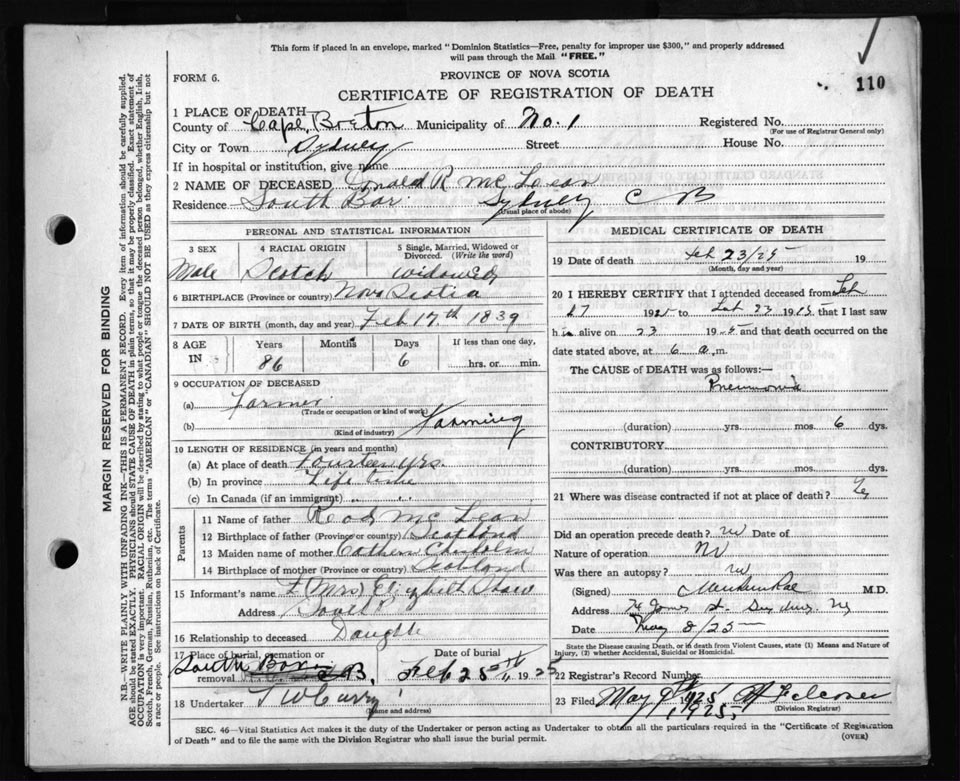 This form if placed in an envelope, marked "Dominion Statistics—Free, penalty for improper use $300," and properly addressed
will pass through the Mail "FREE."
FORM 6.
PROVINCE OF NOVA SCOTIA
110
CERTIFICATE OF REGISTRATION OF DEATH
1 PLACE OF DEATH
County of Cape Breton Municipality of No. 1 Registered No.
(For use of Registrar General only)
City or Town Sydney Street House No.
If in hospital or institution, give name
2 NAME OF DECEASED Donald R McLean
Residence South Bar Sydney C B
(Usual place of abode)
PERSONAL AND STATISTICAL INFORMATION
3 SEX 4 RACIAL ORIGIN 5 Single, Married, Widowed or Divorced. (Write the word)
Male Scotch widowed
6 BIRTHPLACE (Province or country) Nova Scotia
7 DATE OF BIRTH (month, day and year) Feb 17th 1839
8 AGE IN Years Months Days If less than one day,
86 6 hrs. or min.
9 OCCUPATION OF DECEASED
(a) Farmer
(Trade or occupation or kind of work)
(b) Farming
(Kind of industry)
10 LENGTH OF RESIDENCE (in years and months)
(a) At place of death Fourteen yrs.
(b) In province Life time
(c) In Canada (if an immigrant) " "
Parents
11 Name of father McLean
12 Birthplace of father (Province or country) Scotland
13 Maiden name of mother Cathern Chisholm
14 Birthplace of mother (Province or country) Scotland
15 Informant's name (Mrs) Elizabeth Shaw
Address South
16 Relationship to deceased Daughter
17 Place of burial, cremation or removal Date of burial
South Bar C.B. Feb 25 1925
18 Undertaker T W Curry
(Name and address)
MEDICAL CERTIFICATE OF DEATH
19 Date of death Feb 23/25 19
(Month, day and year)
20 I HEREBY CERTIFY that I attended deceased from Feb
1925 to Feb 23 19 that I last saw
him alive on 23 1925 and that death occurred on
date stated above, at 6 a.m.
The CAUSE OF DEATH was as follows:—
Pneumonia
(duration) yrs. mos. 6 dys.
CONTRIBUTORY
(duration) yrs. mos. dys.
21 Where was disease contracted if not at place of death?
Did an operation precede death? no Date of
Nature of operation No
Was there an autopsy? no
(Signed) M.D.
Address St. Sydney, NS
Date May 8/25
State the Disease causing Death, or in death from Violent Causes, state (1) Means and Nature of
Injury, (2) whether Accidental, Suicidal or Homicidal.
22 Registrar's Record Number
23 Filed May 9th 1925 Falconer
1925
(Division Registrar)
SEC. 46—Vital Statistics Act makes it the duty of the Undertaker or person acting as Undertaker to obtain all the particulars required in the "Certificate of Registration
of Death" and to file the same with the Division Registrar who shall issue the burial permit.
(OVER)
MARGIN RESERVED FOR BINDING
N.B.—WRITE PLAINLY WITH UNFADING INK—THIS IS A PERMANENT RECORD. Every item of information should be carefully supplied.
AGE should be stated EXACTLY. PHYSICIANS should STATE CAUSE OF DEATH in plain terms, so that it may be properly classified. Exact statement of
OCCUPATION is very important. RACIAL ORIGIN will be described by stating to what people or tongue the deceased person belonged, whether English, Irish,
Scotch, French, German, Russian, Ruthenian, etc. The terms "AMERICAN" or "CANADIAN" SHOULD NOT BE USED as they express citizenship but not
a race or people. See instructions on back of Certificate.